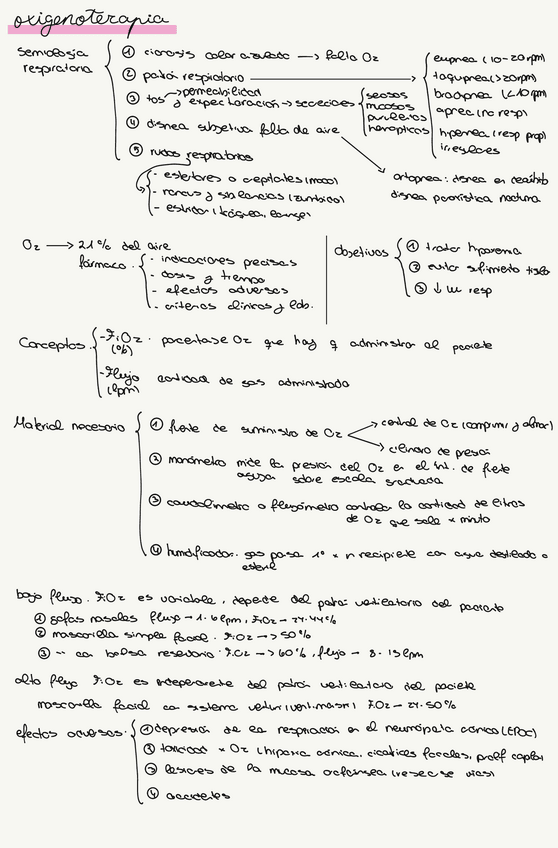 oxigenoterapia
semiología respiratoria
① cianosis color azulado → falta O2
② patrón respiratorio →
eupnea (10-20 rpm)
taquipnea (>20 rpm)
bradipnea (<10 rpm)
apnea (no resp)
hiperpnea (resp prof)
irregulares
③ tos → permeabilidad
y expectoración → secreciones
serosos
mucosos
purulentos
hemopticos
④ disnea subjetiva falta de aire
ortopnea: disnea en decúbito
disnea paroxística nocturna
⑤ ruidos respiratorios
- estertores o crepitantes (moco)
- roncus y sibilancias (zumbido)
- estridor (tráquea, laringe)
O2 → 21% del aire
fármaco.
- indicaciones precisas
- dosis y tiempo
- efectos adversos
- criterios clínicos y lab.
objetivos
① tratar hipoxemia
② evitar sufrimiento tisular
③ ↓ W resp
Conceptos.
- FiO2. porcentaje O2 que hay q administrar al paciente
(%)
- Flujo cantidad de gas administrada
(lpm)
Material necesario
① fuente de suministro de O2
→ central de O2 (comprimir y almac)
→ cilindro de presión
② manómetro mide la presión del O2 en el int. de fuente
aguja sobre escala graduada
③ caudalímetro o flujómetro controlar la cantidad de litros
de O2 que sale x minuto
④ humidificador. gas pasa 1º x n recipiente con agua destilada o
esteril
bajo flujo. FiO2 es variable, depende del patrón ventilatorio del paciente
① gafas nasales flujo → 1-6 lpm, FiO2 → 24-44%
② mascarilla simple facial. FiO2 → >50%
③ " con bolsa reservorio. FiO2 → >60%, flujo → 8-15 lpm
alto flujo FiO2 es independiente del patrón ventilatorio del paciente
mascarilla facial con sistema venturi (ventimask) FiO2 → 24-50%
efectos adversos.
① depresión de la respiración en el neumópata crónico (EPOC)
② toxicidad x O2 (hipoxia crónica, cicatrices faciales, prolif capilar
③ lesiones de la mucosa orofaríngea (resecarse vías)
④ accidentes